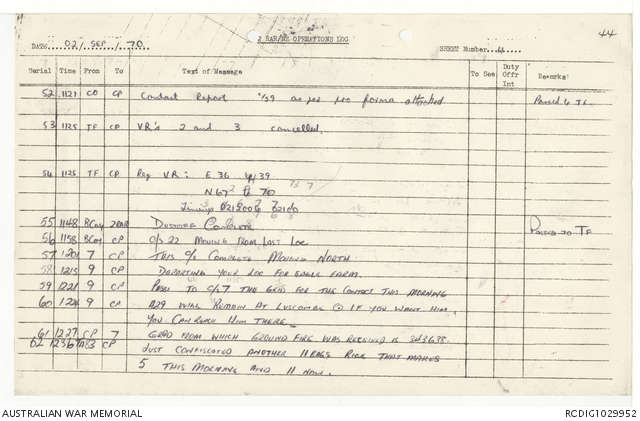 44
2 RAR/NZ OPERATIONS LOG
DATE 02/ SEP / 70
SHEET Number 4
Serial Time From To Text of Message To See Duty Offr Int Remarks
52 1121 CO CP Contact Report as per pro forma attached Passed to TF
53 1125 TF CP VR's 2 and 3 cancelled.
54 1125 TF CP Req VR: E 36 39
N 67 to 70
Timings
55 1148 BCoy 2RAR Dustoff Complete Passed to TF
56 1158 BCoy CP C/S 22 Moving From Last Loc
57 1201 7 CP This C/S Complete Moving North
58 1215 9 CP Departing Your Loc For Eagle Farm.
59 1221 9 CP Pass To C/S 7 The Grid For The Contact This Morning
60 1224 9 CP A29 Will Remain At Luscombe If You Want Him
You Can Reach Him There.
61 1227 CP 7 Grid From Which Ground Fire Was Received is
62 1236 CP Just Confiscated Another 11 Bags Rice That Makes
5 This Morning And 11 Now.
AUSTRALIAN WAR MEMORIAL
RCDIG1029952